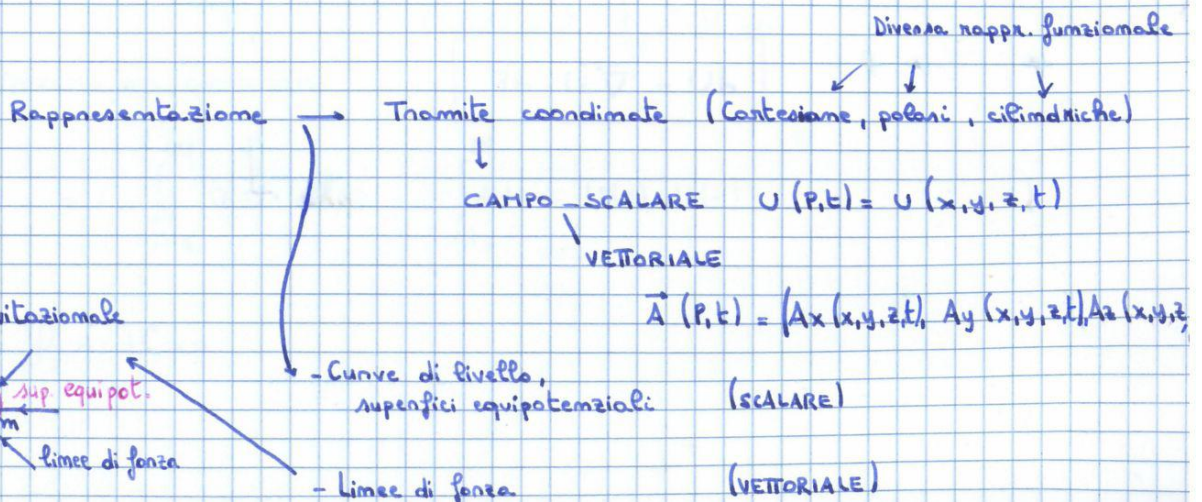 Diversa rappr. funzionale
Rappresentazione → Tramite coordinate (Cartesiane, polari, cilindriche)
CAMPO - SCALARE U (P,t) = U (x,y,z,t)
VETTORIALE
A (P,t) = (Ax (x,y,z,t), Ay (x,y,z,t), Az (x,y,z,
itazionale
- Curve di livello,
superfici equipotenziali (SCALARE)
sup. equipot.
m
linee di forza
- Linee di forza (VETTORIALE)